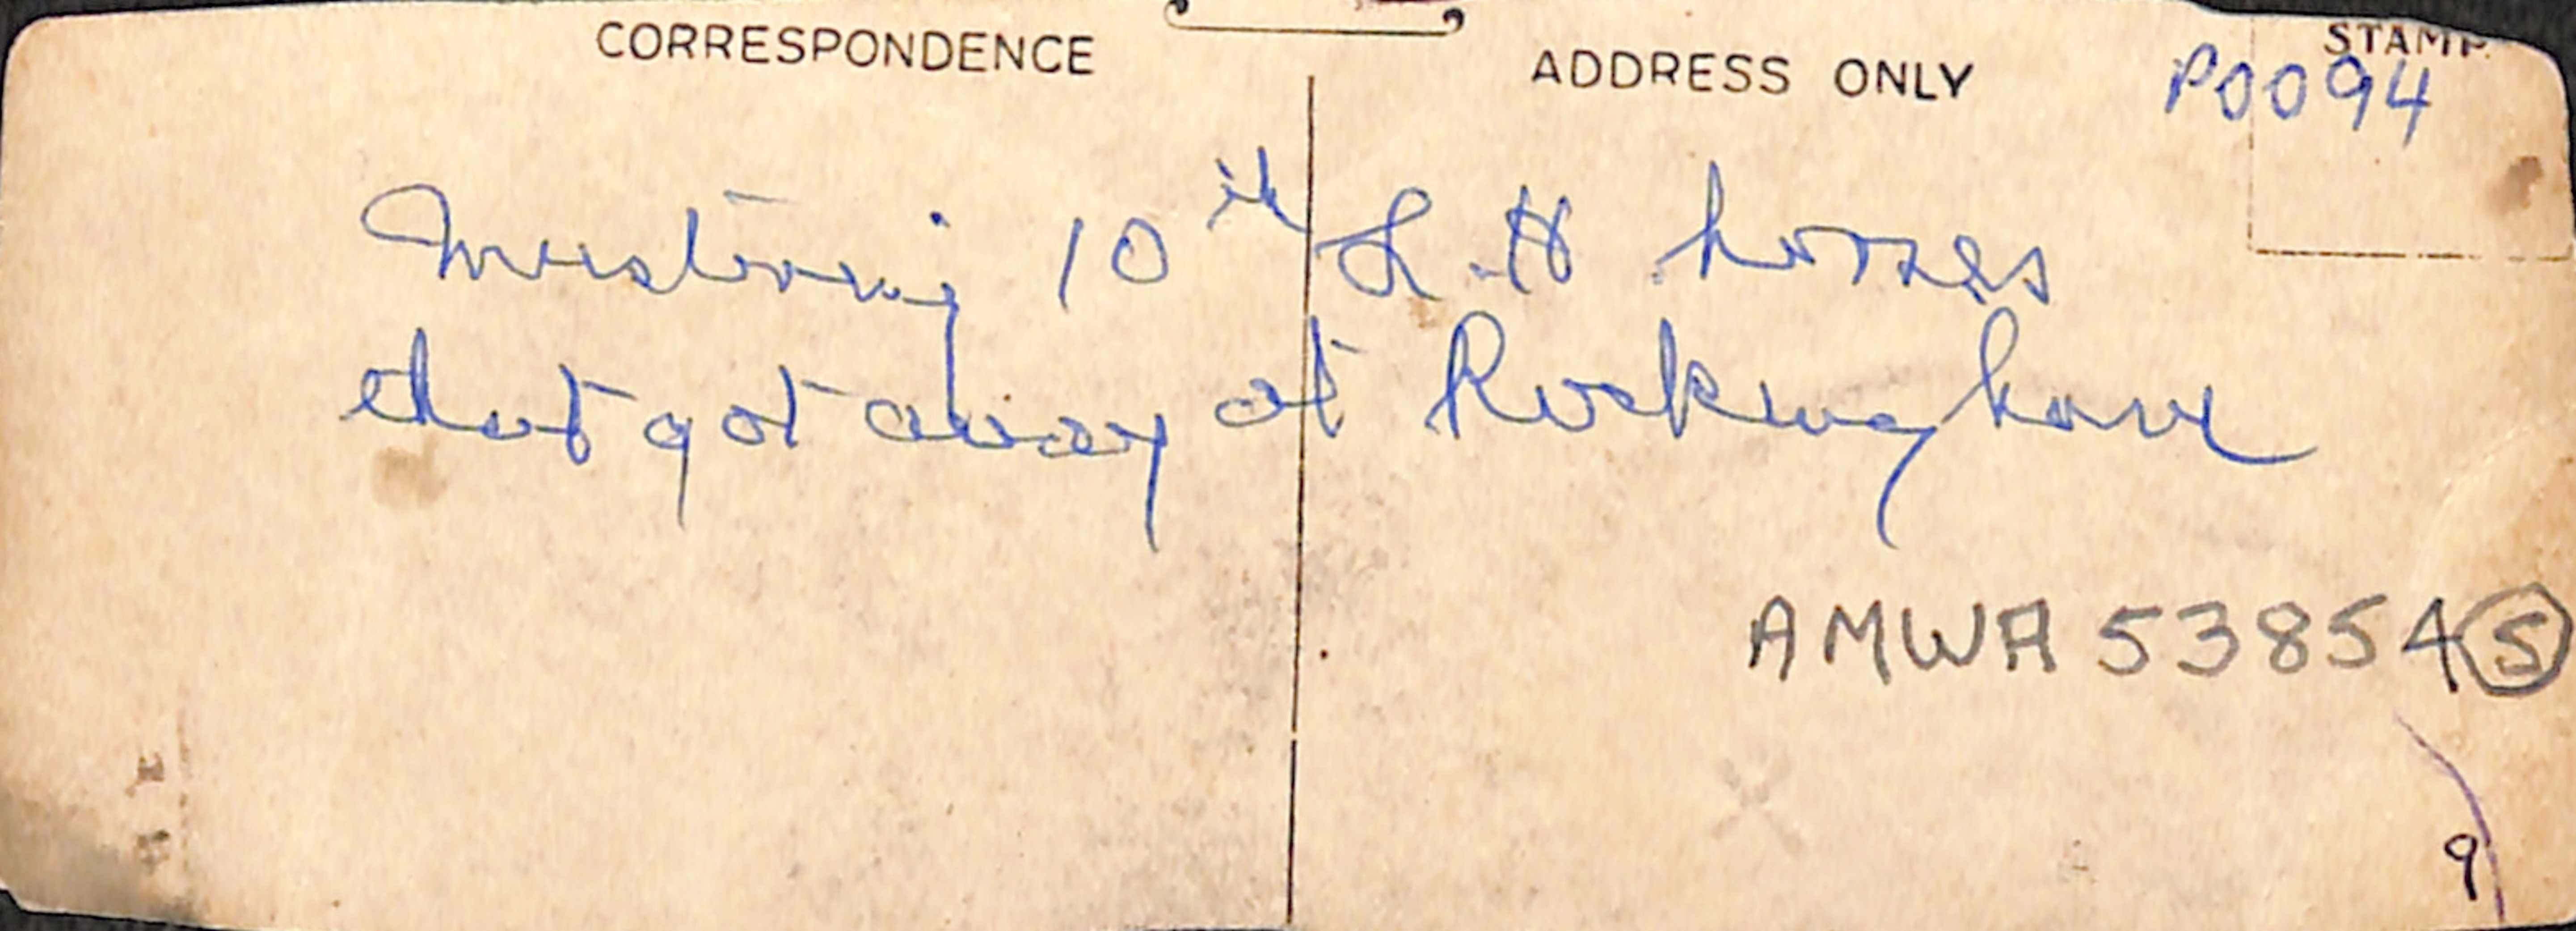 CORRESPONDENCE
ADDRESS ONLY
STAMP
P0094
Mustering 10th L.H horses
that got away at Rockingham
AMWA 53854 5
9